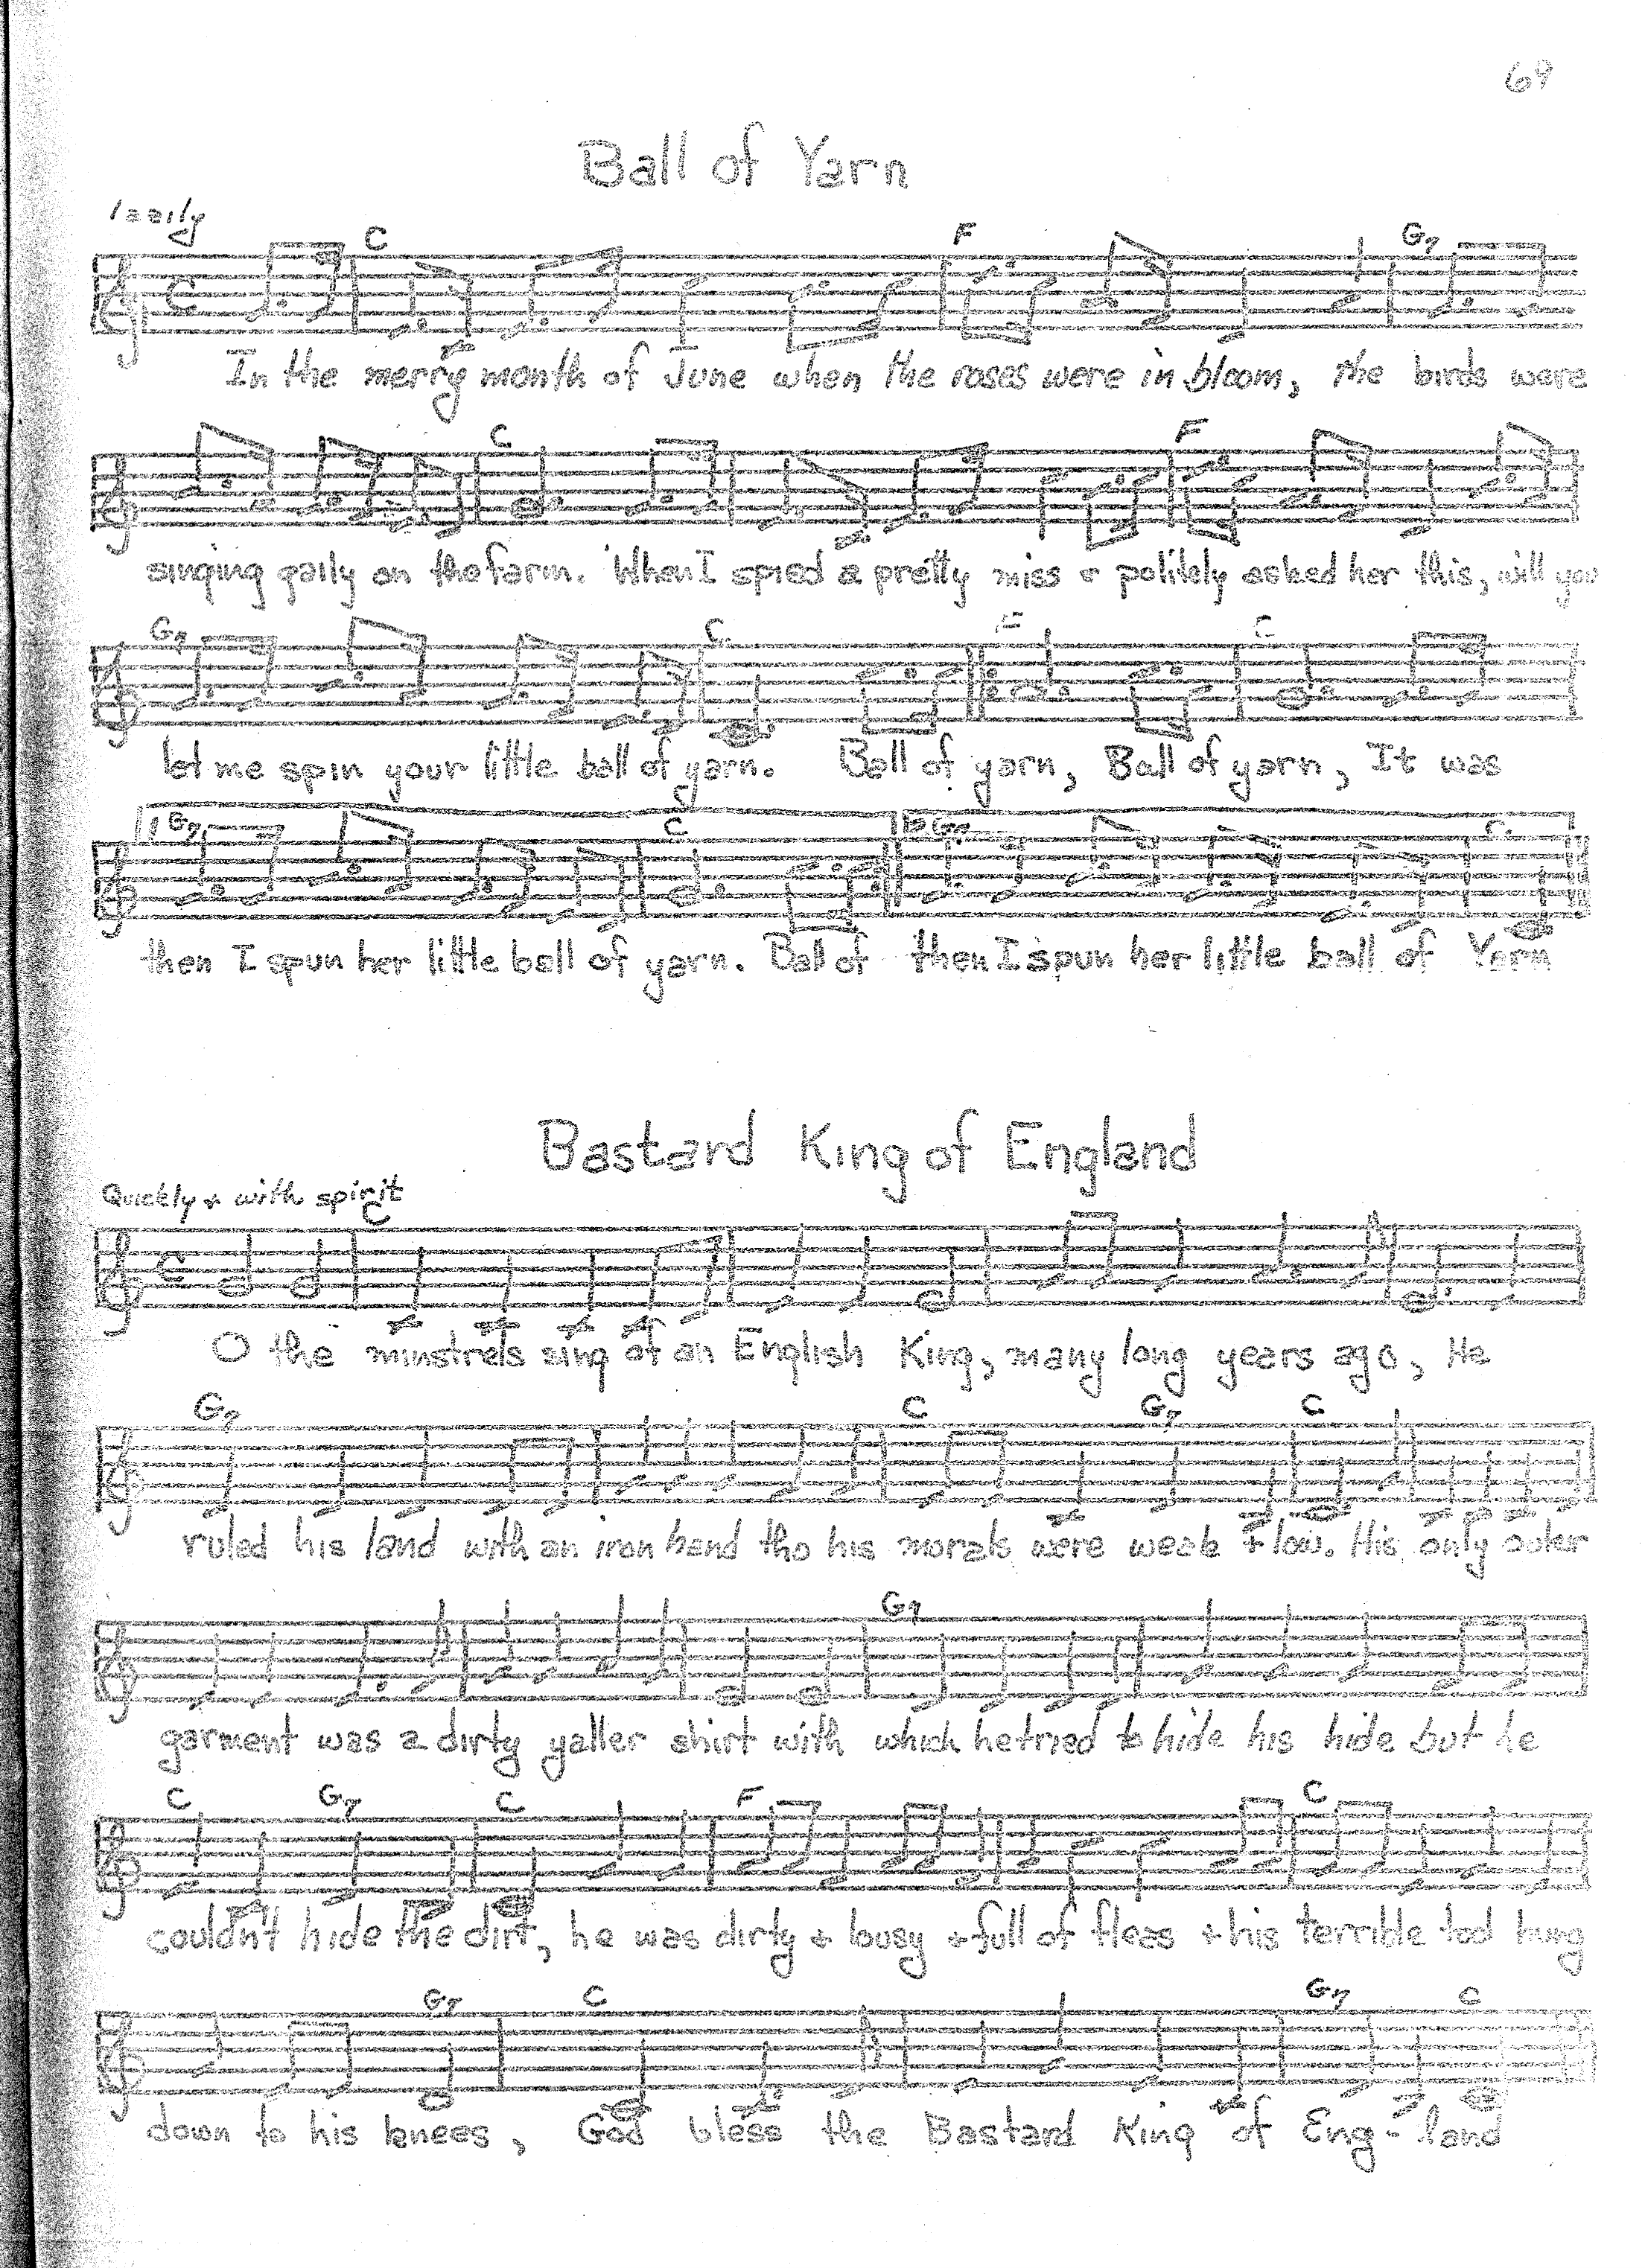 69
Ball of Yarn
lazily
C F G7
In the merry month of June when the roses were in bloom, the birds were
C F
singing gaily on the farm. When I spied a pretty miss + politely asked her this, will you
G7 C F C
let me spin your little ball of yarn. Ball of yarn, Ball of yarn, It was
1 G7 C 2 G7 C
then I spun her little ball of yarn. Ball of then I spun her little ball of Yarn
Bastard King of England
Quickly + with spirit
C
O the minstrels sing of an English King, many long years ago, He
G7 C G7 C
ruled his land with an iron hand tho his morals were weak + low. His only outer
G7
garment was a dirty yaller shirt with which he tried to hide his hide but he
C G7 C F C
couldn't hide the dirt, he was dirty + lousy + full of fleas + his terrible tool hung
G7 C G7 C
down to his knees, God bless the Bastard King of Eng-land